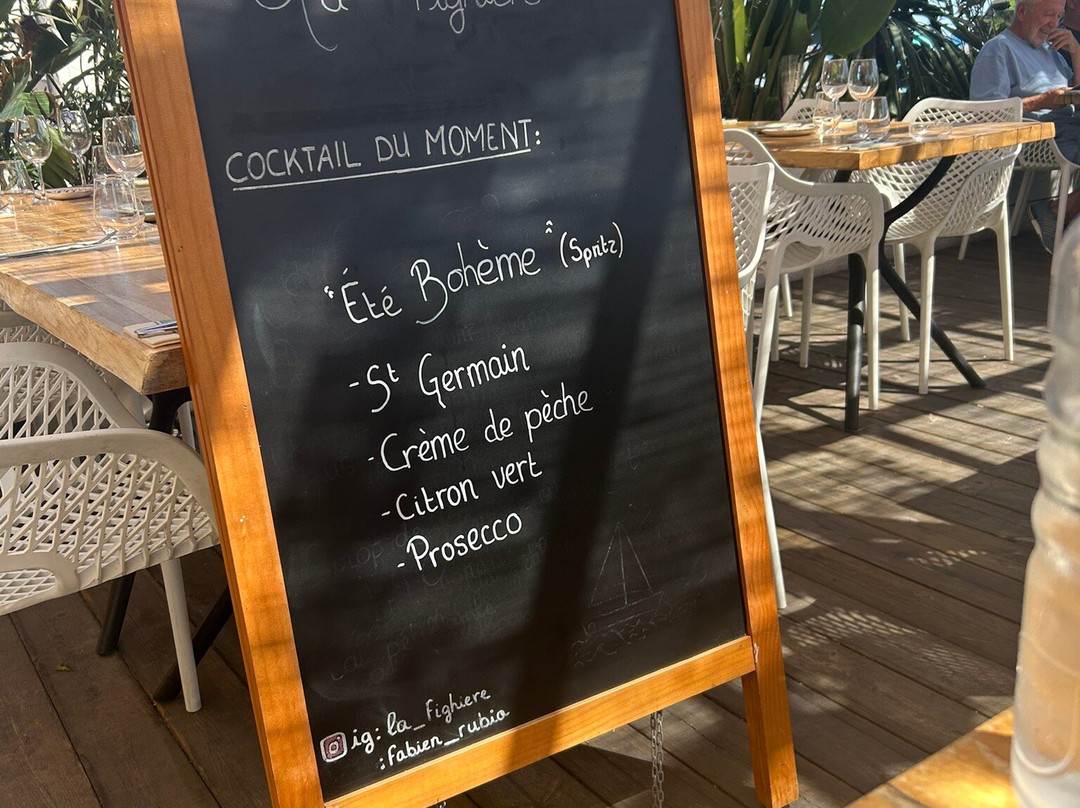 COCKTAIL DU MOMENT:
"Été Bohème" (Spritz)
- St Germain
- Crème de pèche
- Citron vert
- Prosecco
ig: la_fighiere
: fabien_rubio